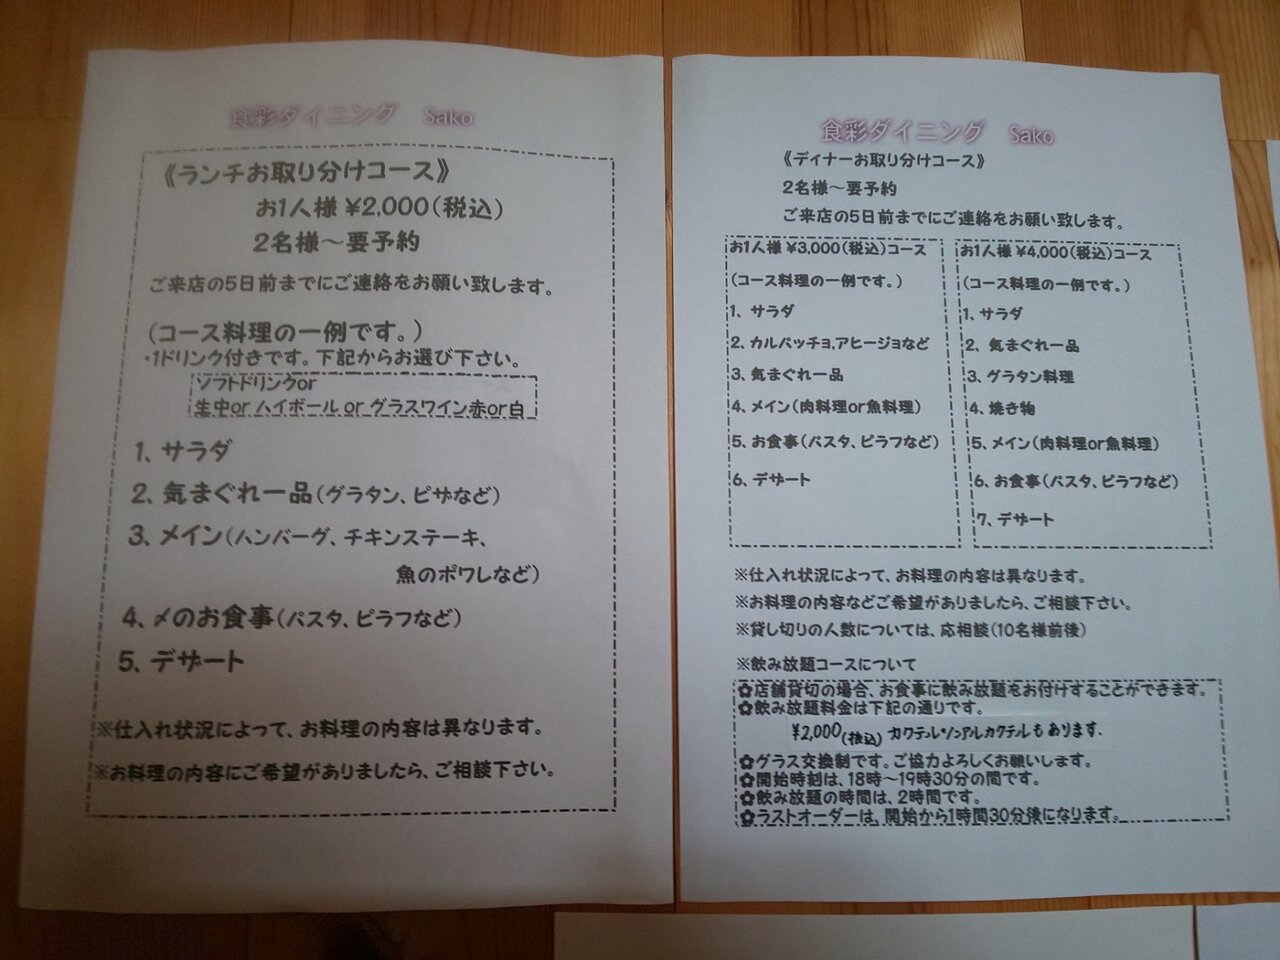 食彩ダイニング Sako
《ランチお取り分けコース》
お1人様 ¥2,000(税込)
2名様~要予約
ご来店の5日前までにご連絡をお願い致します。
(コース料理の一例です。)
・1ドリンク付きです。下記からお選び下さい。
ソフトドリンクor
生中or ハイボール or グラスワイン赤or白
1、サラダ
2、気まぐれ一品(グラタン、ピザなど)
3、メイン(ハンバーグ、チキンステーキ、
魚のポワレなど)
4、〆のお食事(パスタ、ピラフなど)
5、デザート
※仕入れ状況によって、お料理の内容は異なります。
※お料理の内容にご希望がありましたら、ご相談下さい。
食彩ダイニング Sako
《ディナーお取り分けコース》
2名様~要予約
ご来店の5日前までにご連絡をお願い致します。
お1人様 ¥3,000(税込)コース
(コース料理の一例です。)
1、サラダ
2、カルパッチョ,アヒージョなど
3、気まぐれ一品
4、メイン(肉料理or魚料理)
5、お食事(パスタ、ピラフなど)
6、デザート
お1人様 ¥4,000(税込)コース
(コース料理の一例です。)
1、サラダ
2、気まぐれ一品
3、グラタン料理
4、焼き物
5、メイン(肉料理or魚料理)
6、お食事(パスタ、ピラフなど)
7、デザート
※仕入れ状況によって、お料理の内容は異なります。
※お料理の内容などご希望がありましたら、ご相談下さい。
※貸し切りの人数については、応相談(10名様前後)
※飲み放題コースについて
✿店舗貸切の場合、お食事に飲み放題をお付けすることができます。
✿飲み放題料金は下記の通りです。
¥2,000(税込) カクテル・ノンアルカクテルもあります.
✿グラス交換制です。ご協力よろしくお願いします。
✿開始時刻は、18時~19時30分の間です。
✿飲み放題の時間は、2時間です。
✿ラストオーダーは、開始から1時間30分後になります。